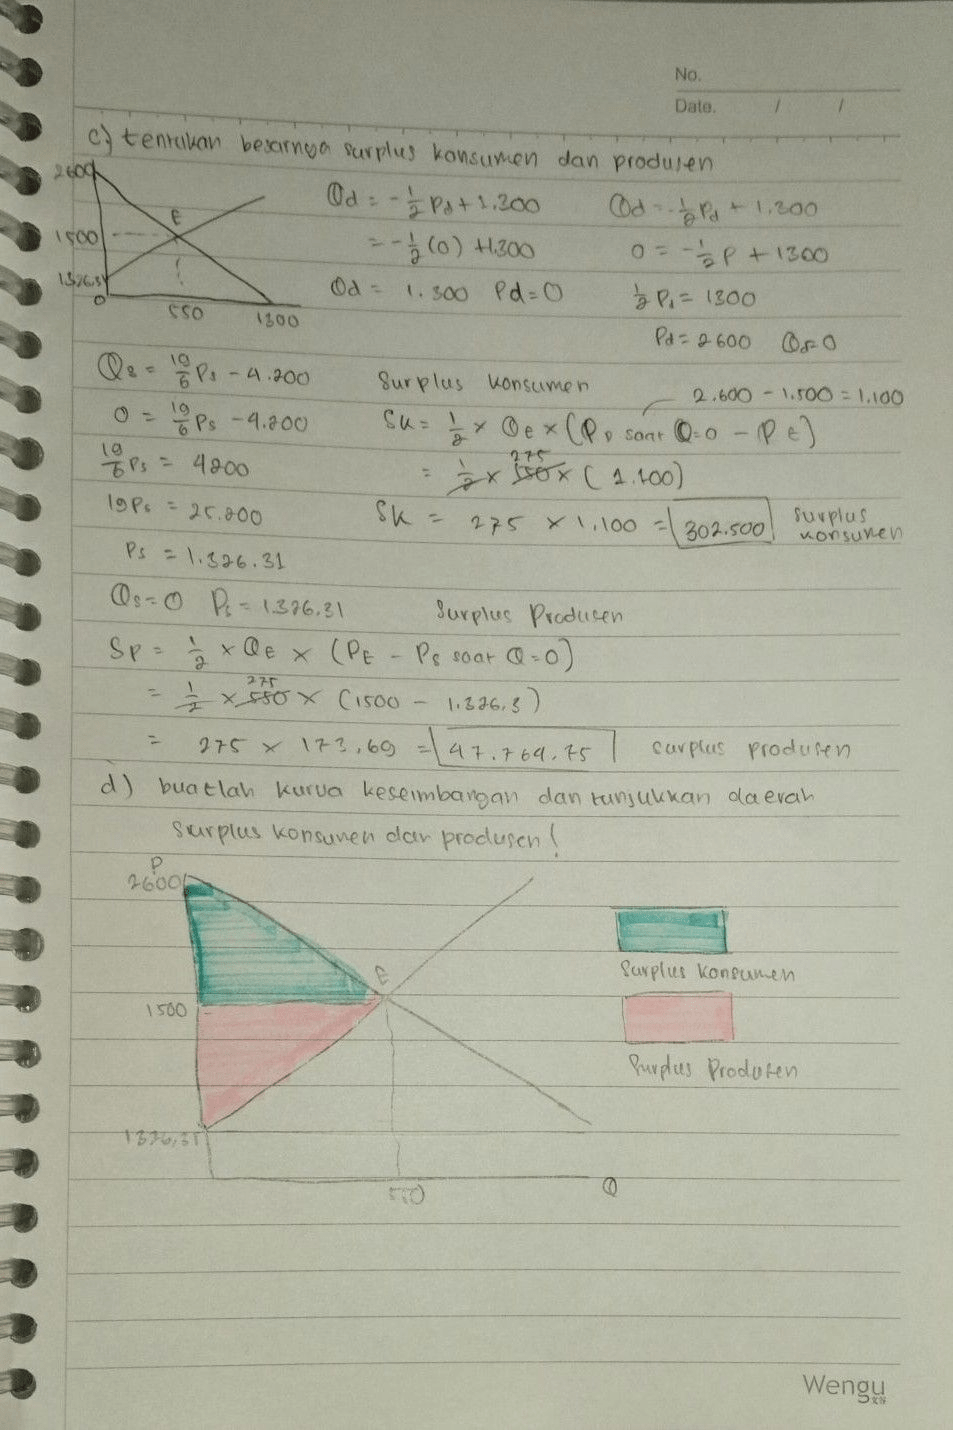 No.
Date. / /
c.) tentukan besarnya surplus konsumen dan produsen
2600
E
1500
1326.31
0
550
1300
Qd = -1/2 Pd + 1.300
= -1/2 (0) + 1.300
Qd = 1.300 Pd = 0
Qd = -1/2 Pd + 1.300
0 = -1/2 P + 1300
1/2 Pd = 1300
Pd = 2600 Qd = 0
Qs = 19/6 Ps - 4.200
0 = 19/6 Ps - 4.200
19/6 Ps = 4200
19 Ps = 25.200
Ps = 1.326.31
Qs = 0 Ps = 1.326,31
Surplus konsumen
2.600 - 1.500 = 1.100
SK = 1/2 × QE × (PD saat Q=0 - PE)
275
= 1/2 × 550 × (1.100)
SK = 275 × 1.100 = 302.500 surplus konsumen
Surplus Produsen
SP = 1/2 × QE × (PE - PS saat Q=0)
275
= 1/2 × 550 × (1500 - 1.326,3)
= 275 × 173,69 = 47.764.75 surplus produsen
d) buatlah kurva keseimbangan dan tunjukkan daerah
surplus konsumen dan produsen!
P
2600
E
1500
1326,31
550
Q
Surplus konsumen
Surplus Produsen
Wengu